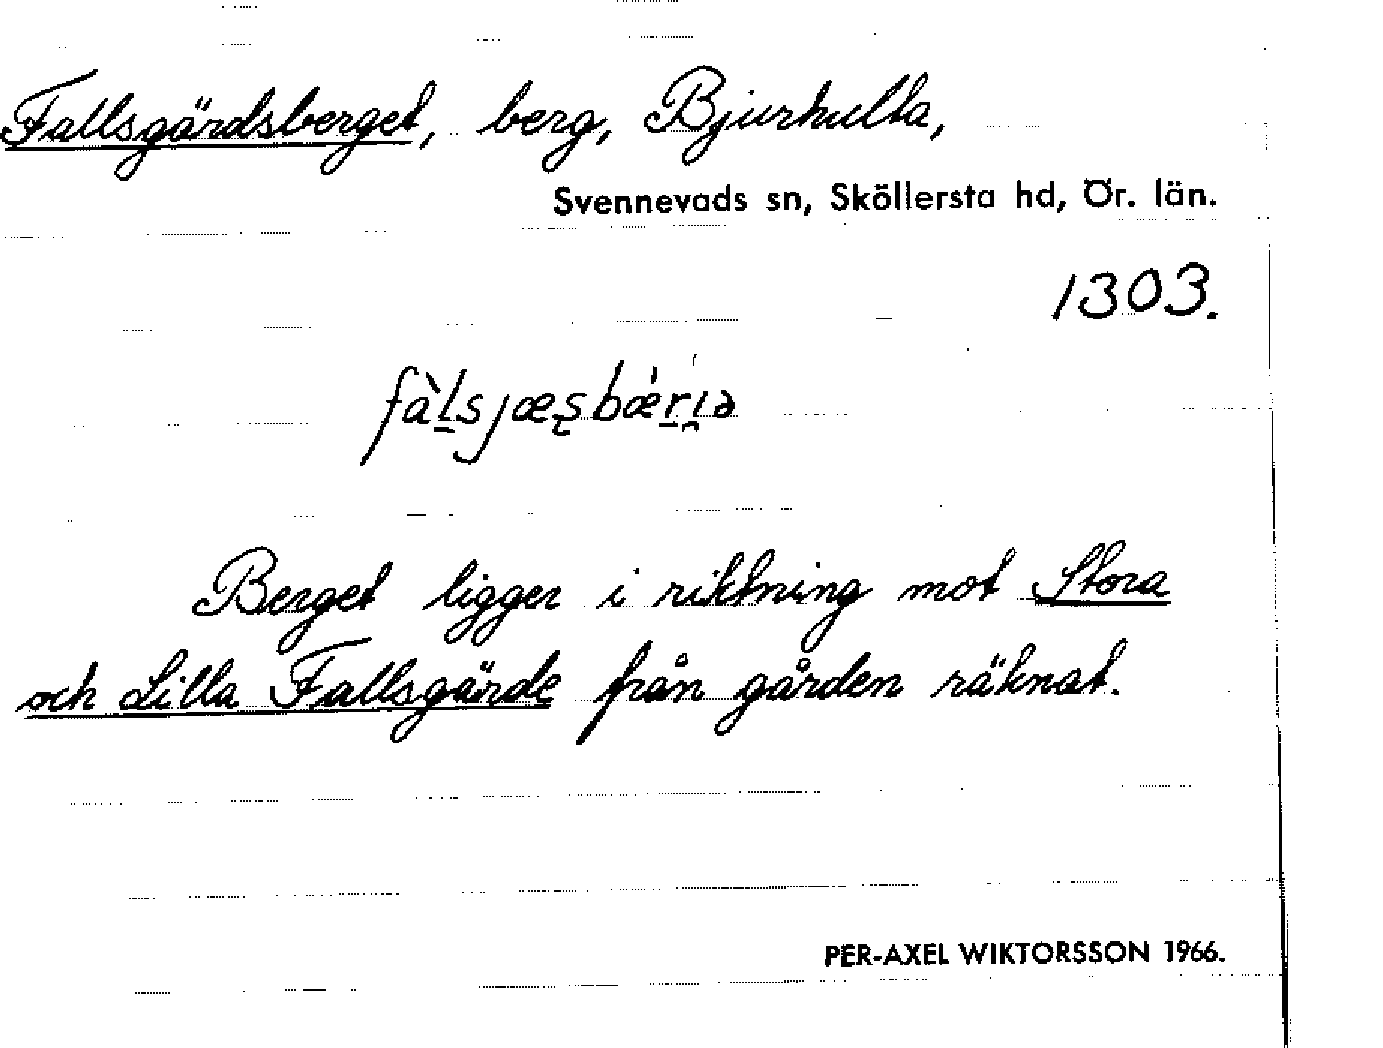 Fallsgärdsberget, berg, Bjurhulta,
Svennevads sn, Sköllersta hd, Ör. län.
1303.
Berget ligger i riktning mot Stora
och Lilla Fallsgärde från gården räknat.
PER-AXEL WIKTORSSON 1966.